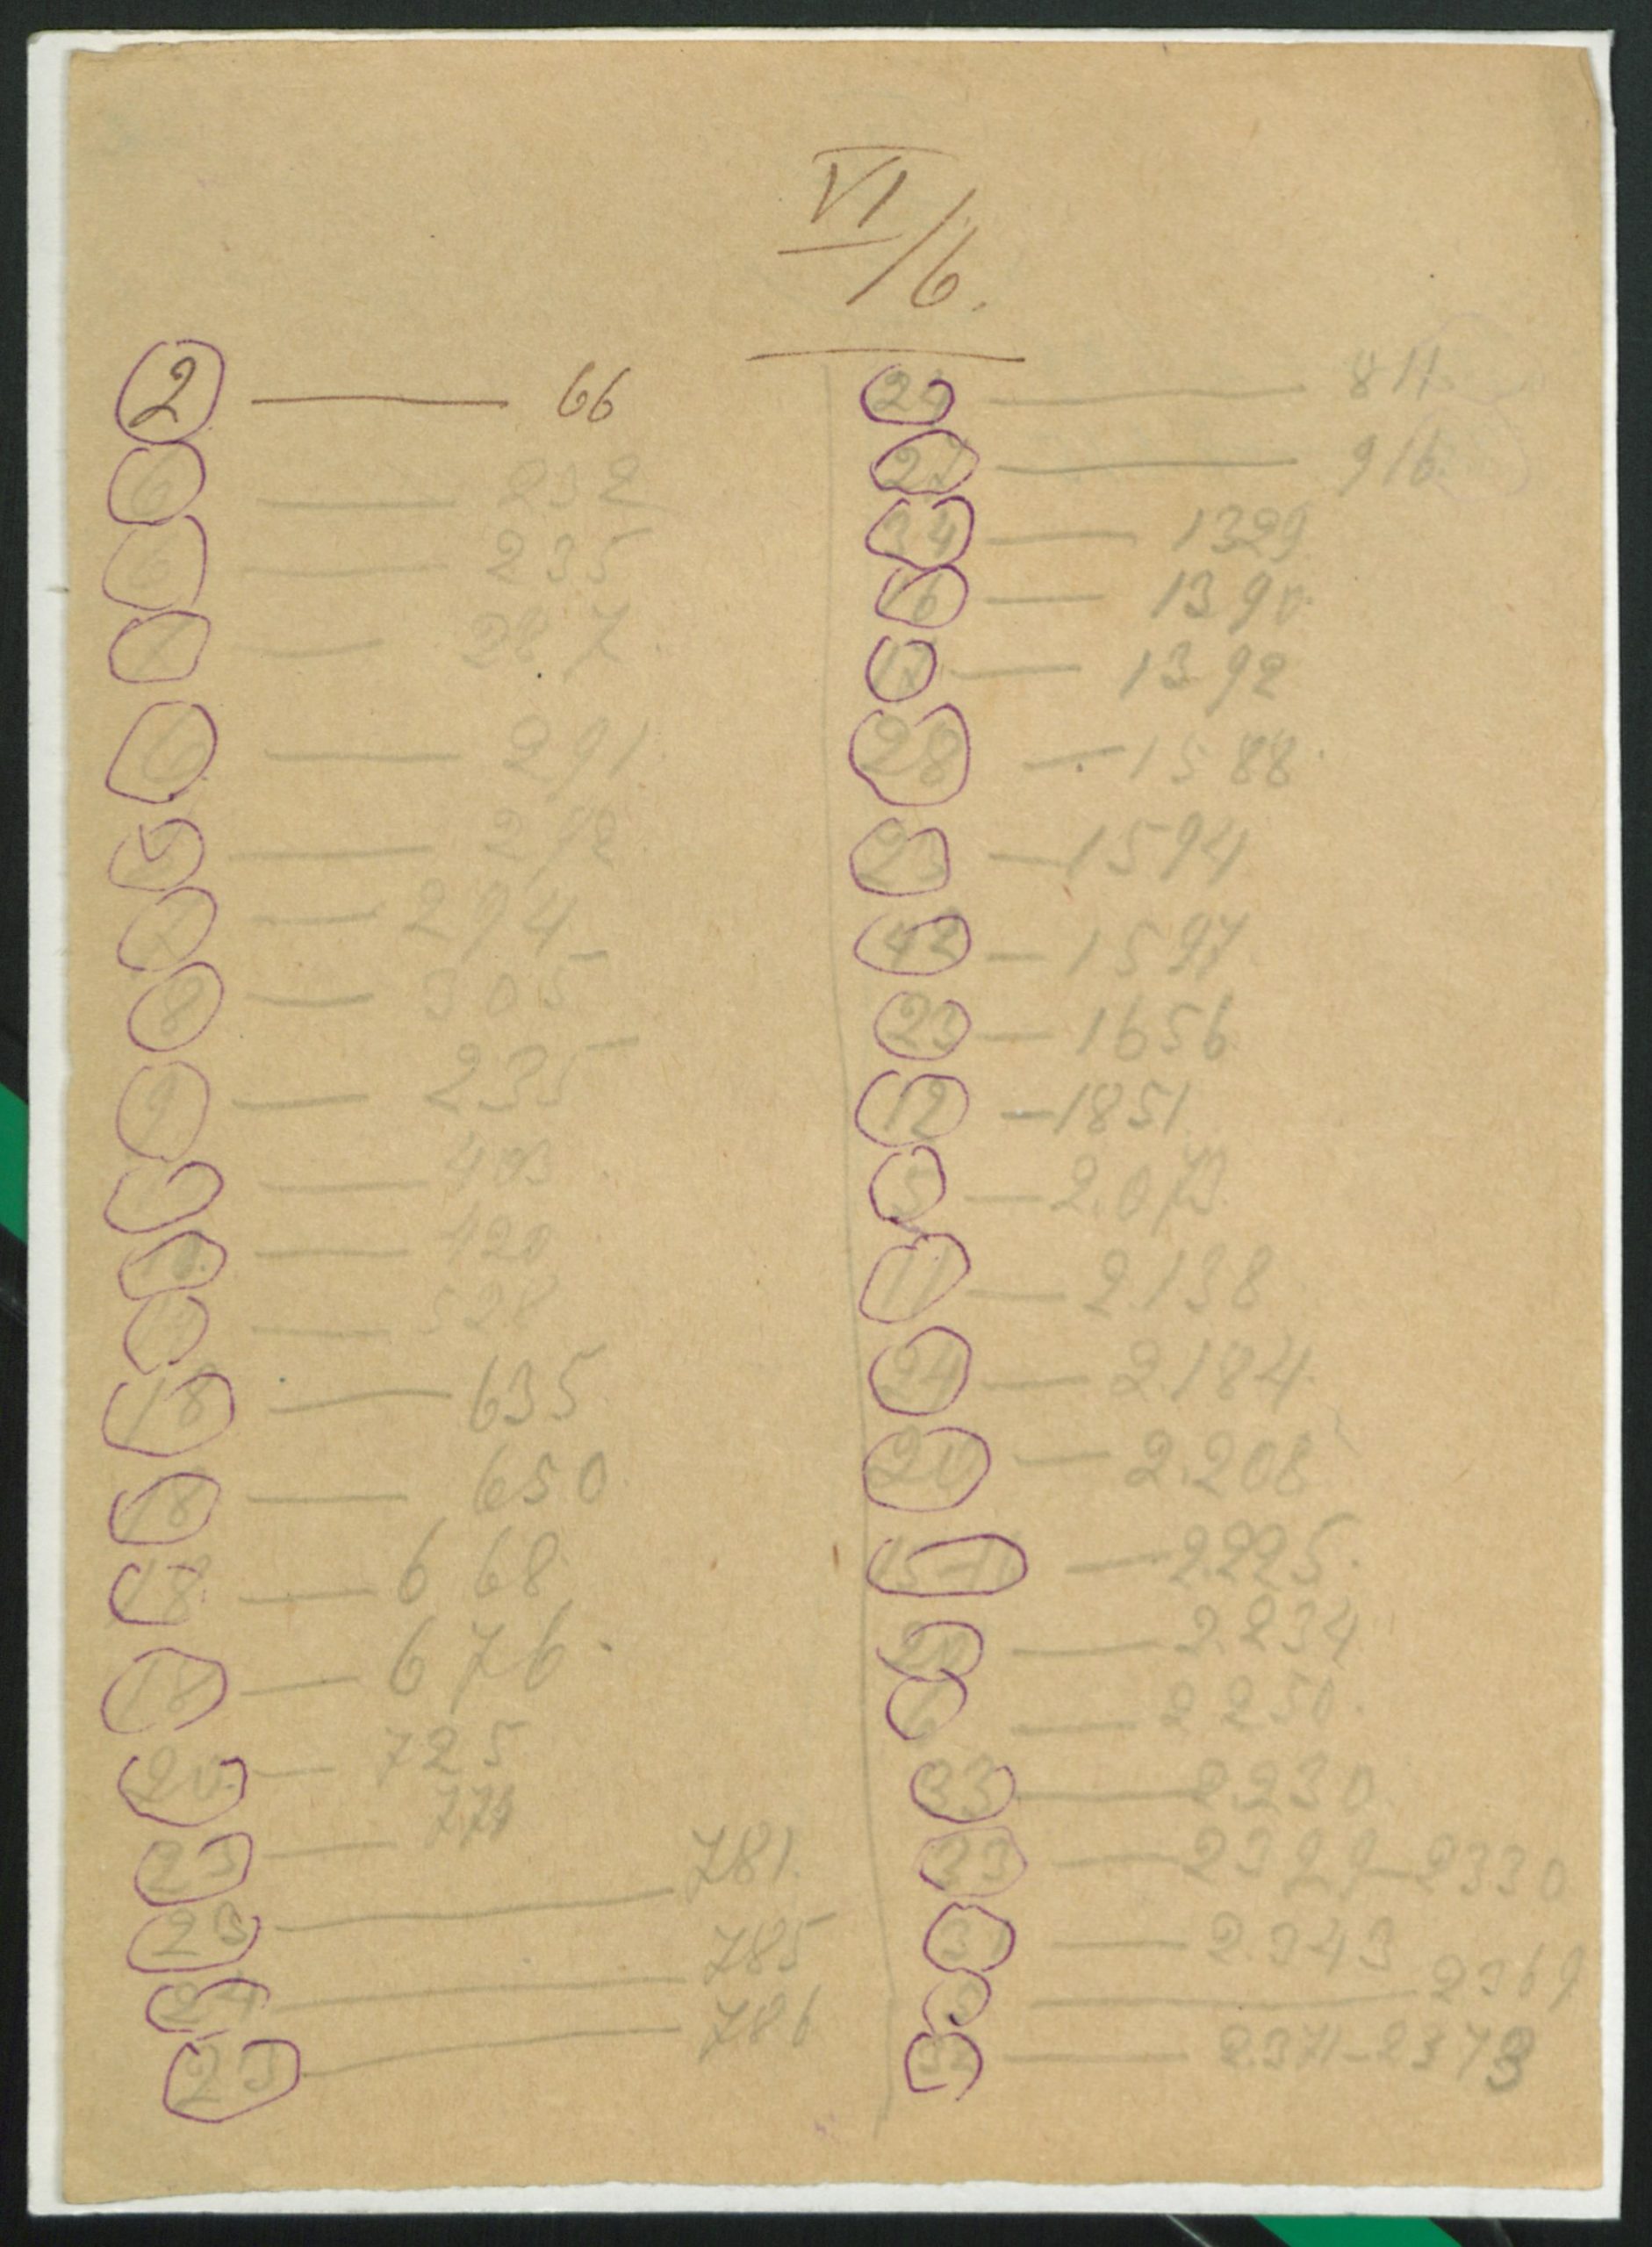 VI/6.
2 — 66
6 — 232
6 — 235
7 — 287
6 — 291
5 — 292
7 — 294
8 — 305
9 — 235
— 403
10 — 420
— 528
18 — 635
18 — 650
18 — 668
18 — 676.
20 — 725
23 — 774
23 — 781.
24 — 785
23 — 786
— 811.
27 — 916.
34 — 1329
16 — 1390.
17 — 1392
28 — 1588.
23 — 1594
42 — 1597.
23 — 1656
12 — 1851
5 — 2.073.
11 — 2.138
24 — 2.184.
20 — 2.208
— 2.225.
20 — 2.234
6 — 2250.
33 — 2230.
33 — 2329–2330
31 — 2.343
— 2369
32 — 2.371–2373